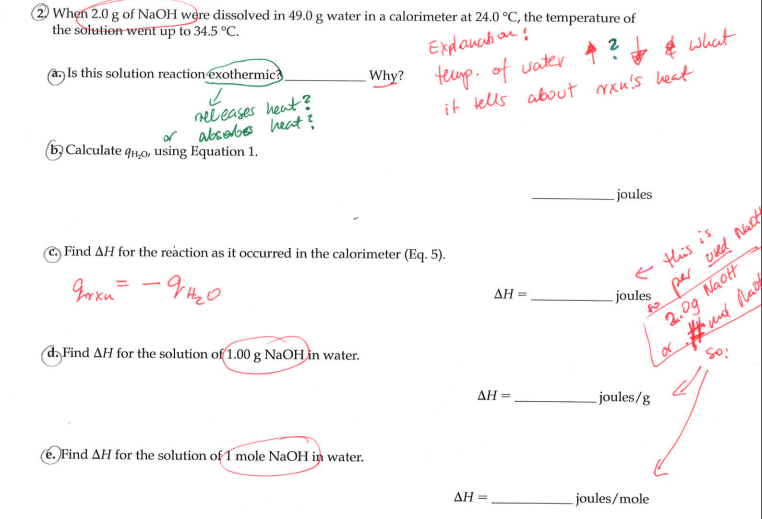 2. When 2.0 g of NaOH were dissolved in 49.0 g water in a calorimeter at 24.0 °C, the temperature of
the solution went up to 34.5 °C.
Explanation:
temp. of water ↑ ? ↓ & what
it tells about rxn's heat
a. Is this solution reaction exothermic? __________ Why?
releases heat?
or absorbs heat?
b. Calculate qH₂O, using Equation 1.
__________ joules
c. Find ΔH for the reaction as it occurred in the calorimeter (Eq. 5).
qrxn = - qH₂O
ΔH = __________ joules
← this is
per used NaOH
so 2.0g NaOH
or # mol NaOH
so:
d. Find ΔH for the solution of 1.00 g NaOH in water.
ΔH = __________ joules/g
e. Find ΔH for the solution of 1 mole NaOH in water.
ΔH = __________ joules/mole